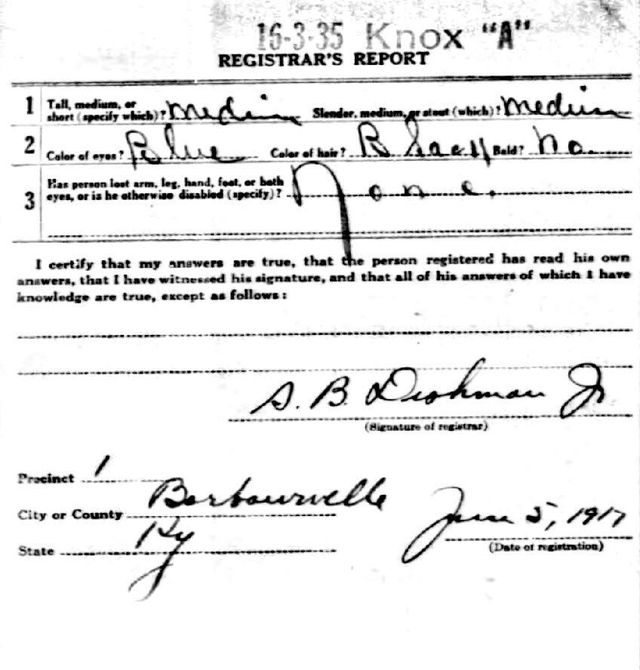 16-3-35 Knox "A"
REGISTRAR'S REPORT
1 Tall, medium, or short (specify which)? Medium Slender, medium, or stout (which)? Medium
2 Color of eyes? Blue Color of hair? Black Bald? No.
3 Has person lost arm, leg, hand, foot, or both eyes, or is he otherwise disabled (specify)? None.
I certify that my answers are true, that the person registered has read his own
answers, that I have witnessed his signature, and that all of his answers of which I have
knowledge are true, except as follows:
S. B. Dishman Jr
(Signature of registrar)
Precinct 1
City or County Barbourville
State Ky
June 5, 1917
(Date of registration)